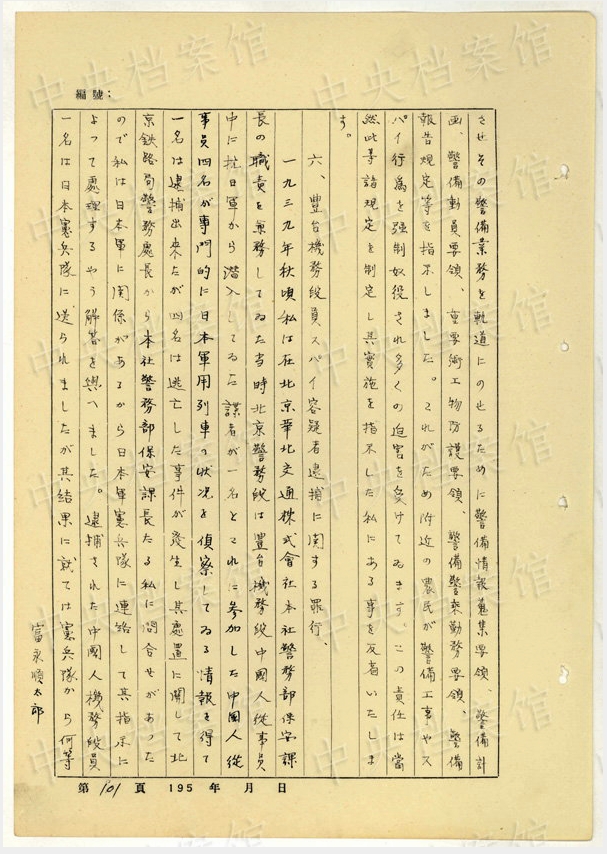 編號：
させその警備業務を軌道にのせるために警備情報蒐集要領、警備計
画、警備動員要領、重要術工物防護要領、警備警乘勤務要領、警備
報告規定等を指示しました。これがため附近の農民が警備工事やス
パイ行為を強制奴役され多くの迫害を受けてゐます。この責任は當
然此等諸規定を制定し其實施を指示した私にある事を反省いたしま
す。
六、豐台機務段員スパイ容疑者逮捕に関する罪行、
一九三九年秋頃私は在北京華北交通株式會社本社警務部保安課
長の職責を兼務してゐた当時北京警務段は豊台機務段中国人従事員
中に抗日軍から潜入してゐた諜者が一名とこれに参加した中國人從
事員四名が專門的に日本軍用列車の状況を偵察してゐる情報を得て
一名は逮捕出来たが四名は逃亡した事件が発生し其處置に関して北
京鉄路局警務處長から本社警務部保安課長たる私に問合せがあった
ので私は日本軍に関係があるから日本軍憲兵隊に連絡して其指示に
よって處理するやう解答を與へました。逮捕された中國人機務段員
一名は日本憲兵隊に送られましたが其結果に就ては憲兵隊から何等
富永順太郎
第101頁 195 年 月 日
中央档案馆